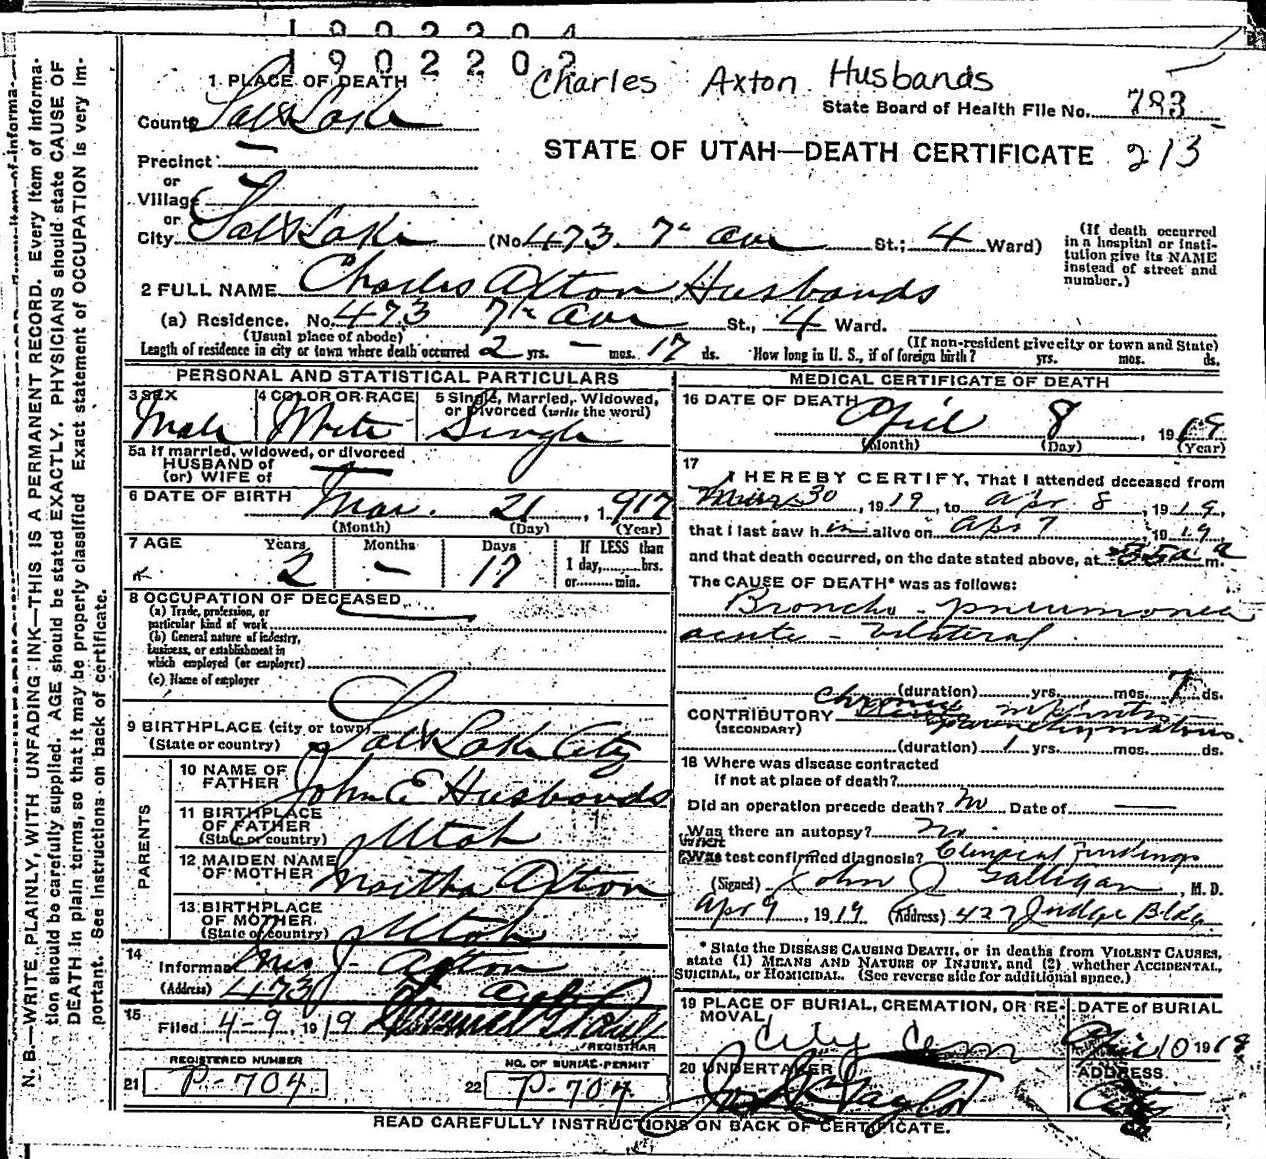 1902204
1902202
Charles Axton Husbands
State Board of Health File No. 783
STATE OF UTAH—DEATH CERTIFICATE 213
1 PLACE OF DEATH
County Salt Lake
Precinct —
or
Village
or
City Salt Lake (No. 473. 7th Ave St.; 4 Ward)
(If death occurred in a hospital or institution give its NAME instead of street and number.)
2 FULL NAME Charles Axton Husbands
(a) Residence. No. 473 7th Ave St., 4 Ward.
(Usual place of abode) (If non-resident give city or town and State)
Length of residence in city or town where death occurred 2 yrs. — mos. 17 ds. How long in U. S., if of foreign birth? yrs. mos. ds.
PERSONAL AND STATISTICAL PARTICULARS
3 SEX Male
4 COLOR OR RACE White
5 Single, Married, Widowed, or Divorced (write the word) Single
5a If married, widowed, or divorced
HUSBAND of
(or) WIFE of —
6 DATE OF BIRTH Mar. 21, 1917
(Month) (Day) (Year)
7 AGE Years 2 Months — Days 17 If LESS than 1 day,......hrs. or......min.
8 OCCUPATION OF DECEASED
(a) Trade, profession, or particular kind of work
(b) General nature of industry, business, or establishment in which employed (or employer)
(c) Name of employer
9 BIRTHPLACE (city or town) Salt Lake City
(State or country)
PARENTS
10 NAME OF FATHER John E Husbands
11 BIRTHPLACE OF FATHER (State or country) Utah
12 MAIDEN NAME OF MOTHER Martha Axton
13 BIRTHPLACE OF MOTHER (State or country) Utah
14 Informant Mrs J. Axton
(Address) 473
15 Filed 4-9, 1919
REGISTRAR
REGISTERED NUMBER
21 P-704
NO. OF BURIAL PERMIT
22 P-704
MEDICAL CERTIFICATE OF DEATH
16 DATE OF DEATH April 8, 1919
(Month) (Day) (Year)
17 I HEREBY CERTIFY, That I attended deceased from
Mar 30, 1919, to Apr 8, 1919,
that I last saw him alive on Apr 7 1919
and that death occurred, on the date stated above, at m.
The CAUSE OF DEATH* was as follows:
Broncho-pneumonia
acute - bilateral
(duration) yrs. mos. 7 ds.
CONTRIBUTORY Chronic
(SECONDARY)
(duration) 1 yrs. mos. ds.
18 Where was disease contracted
if not at place of death?
Did an operation precede death? No Date of —
Was there an autopsy? No.
What test confirmed diagnosis? Clinical findings
(Signed) John J. Galligan, M. D.
Apr 9, 1919 (Address) 427 Judge Bldg
* State the DISEASE CAUSING DEATH, or in deaths from VIOLENT CAUSES, state (1) MEANS AND NATURE OF INJURY, and (2) whether ACCIDENTAL, SUICIDAL, or HOMICIDAL. (See reverse side for additional space.)
19 PLACE OF BURIAL, CREMATION, OR REMOVAL City Cem
DATE of BURIAL April 10 1919
20 UNDERTAKER Taylor
ADDRESS City
READ CAREFULLY INSTRUCTIONS ON BACK OF CERTIFICATE.
N. B.—WRITE PLAINLY, WITH UNFADING INK—THIS IS A PERMANENT RECORD. Every item of information should be carefully supplied. AGE should be stated EXACTLY. PHYSICIANS should state CAUSE OF DEATH in plain terms, so that it may be properly classified. Exact statement of OCCUPATION is very important. See instructions on back of certificate.